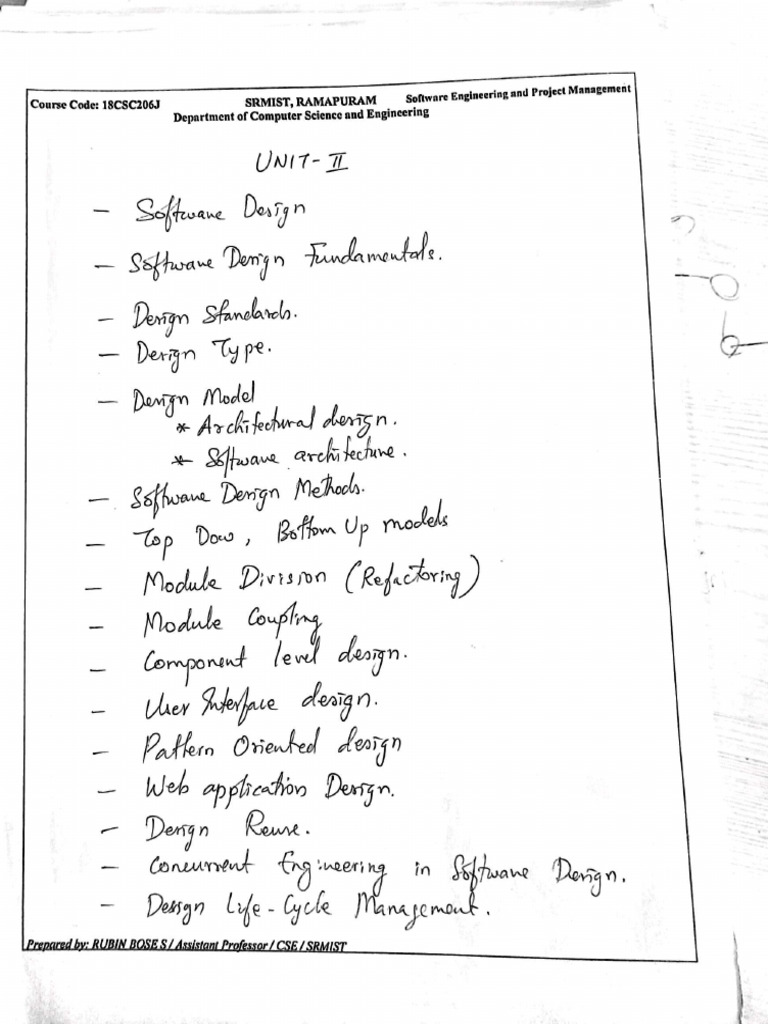 Course Code: 18CSC206J SRMIST, RAMAPURAM Software Engineering and Project Management
Department of Computer Science and Engineering
UNIT-II
- Software Design
- Software Design Fundamentals.
- Design Standards.
- Design Type.
- Design Model
* Architectural design.
* Software architecture.
- Software Design Methods.
- Top Dow, Bottom Up models
- Module Division (Refactoring)
- Module Coupling
- Component level design.
- User Interface design.
- Pattern Oriented design
- Web application Design.
- Design Reuse.
- Concurrent Engineering in Software Design.
- Design Life-Cycle Management.
Prepared by: RUBIN BOSE S / Assistant Professor / CSE / SRMIST